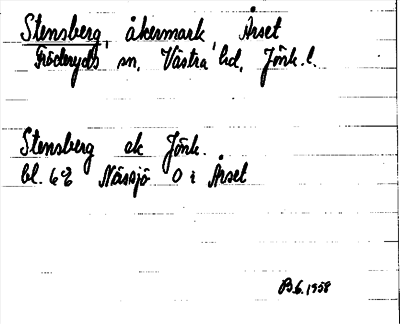 Stensberg, åkermark, Årset
Fröderyds sn, Västra hd, Jönk. l.
Stensberg ek Jönk.
bl. 6 Nässjö O i Årset
B.G. 1958